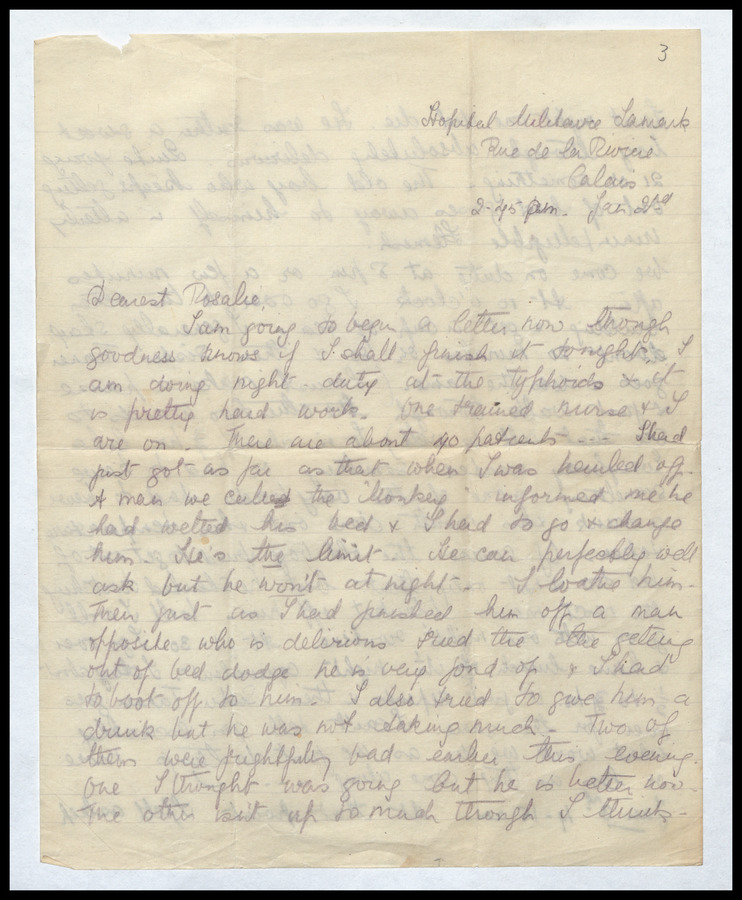 3
Hopital Militaire Lamark
Rue de la Riviere
Calais
2.45 pm. Jan 23rd
Dearest Rosalie,
I am going to begin a letter now though
goodness knows if I shall finish it tonight. I
am doing night-duty at the typhoids & it
is pretty hard work. One trained nurse & I
are on. There are about 40 patients --- I had
just got as far as that when I was hauled off.
A man we called the 'Monkey' informed me he
had wetted his bed & I had to go & change
him. He's the limit. He can perfectly well
ask but he won't at night. I loathe him.
Then just as I had finished him off a man
opposite who is delirious tried the the getting
out of bed dodge he is very fond of & I had
to boot off to him. I also tried to give him a
drink but he was not taking much. Two of
them were frightfully bad earlier this evening.
One I thought was going but he is better now.
The other isn't up to much though I think-